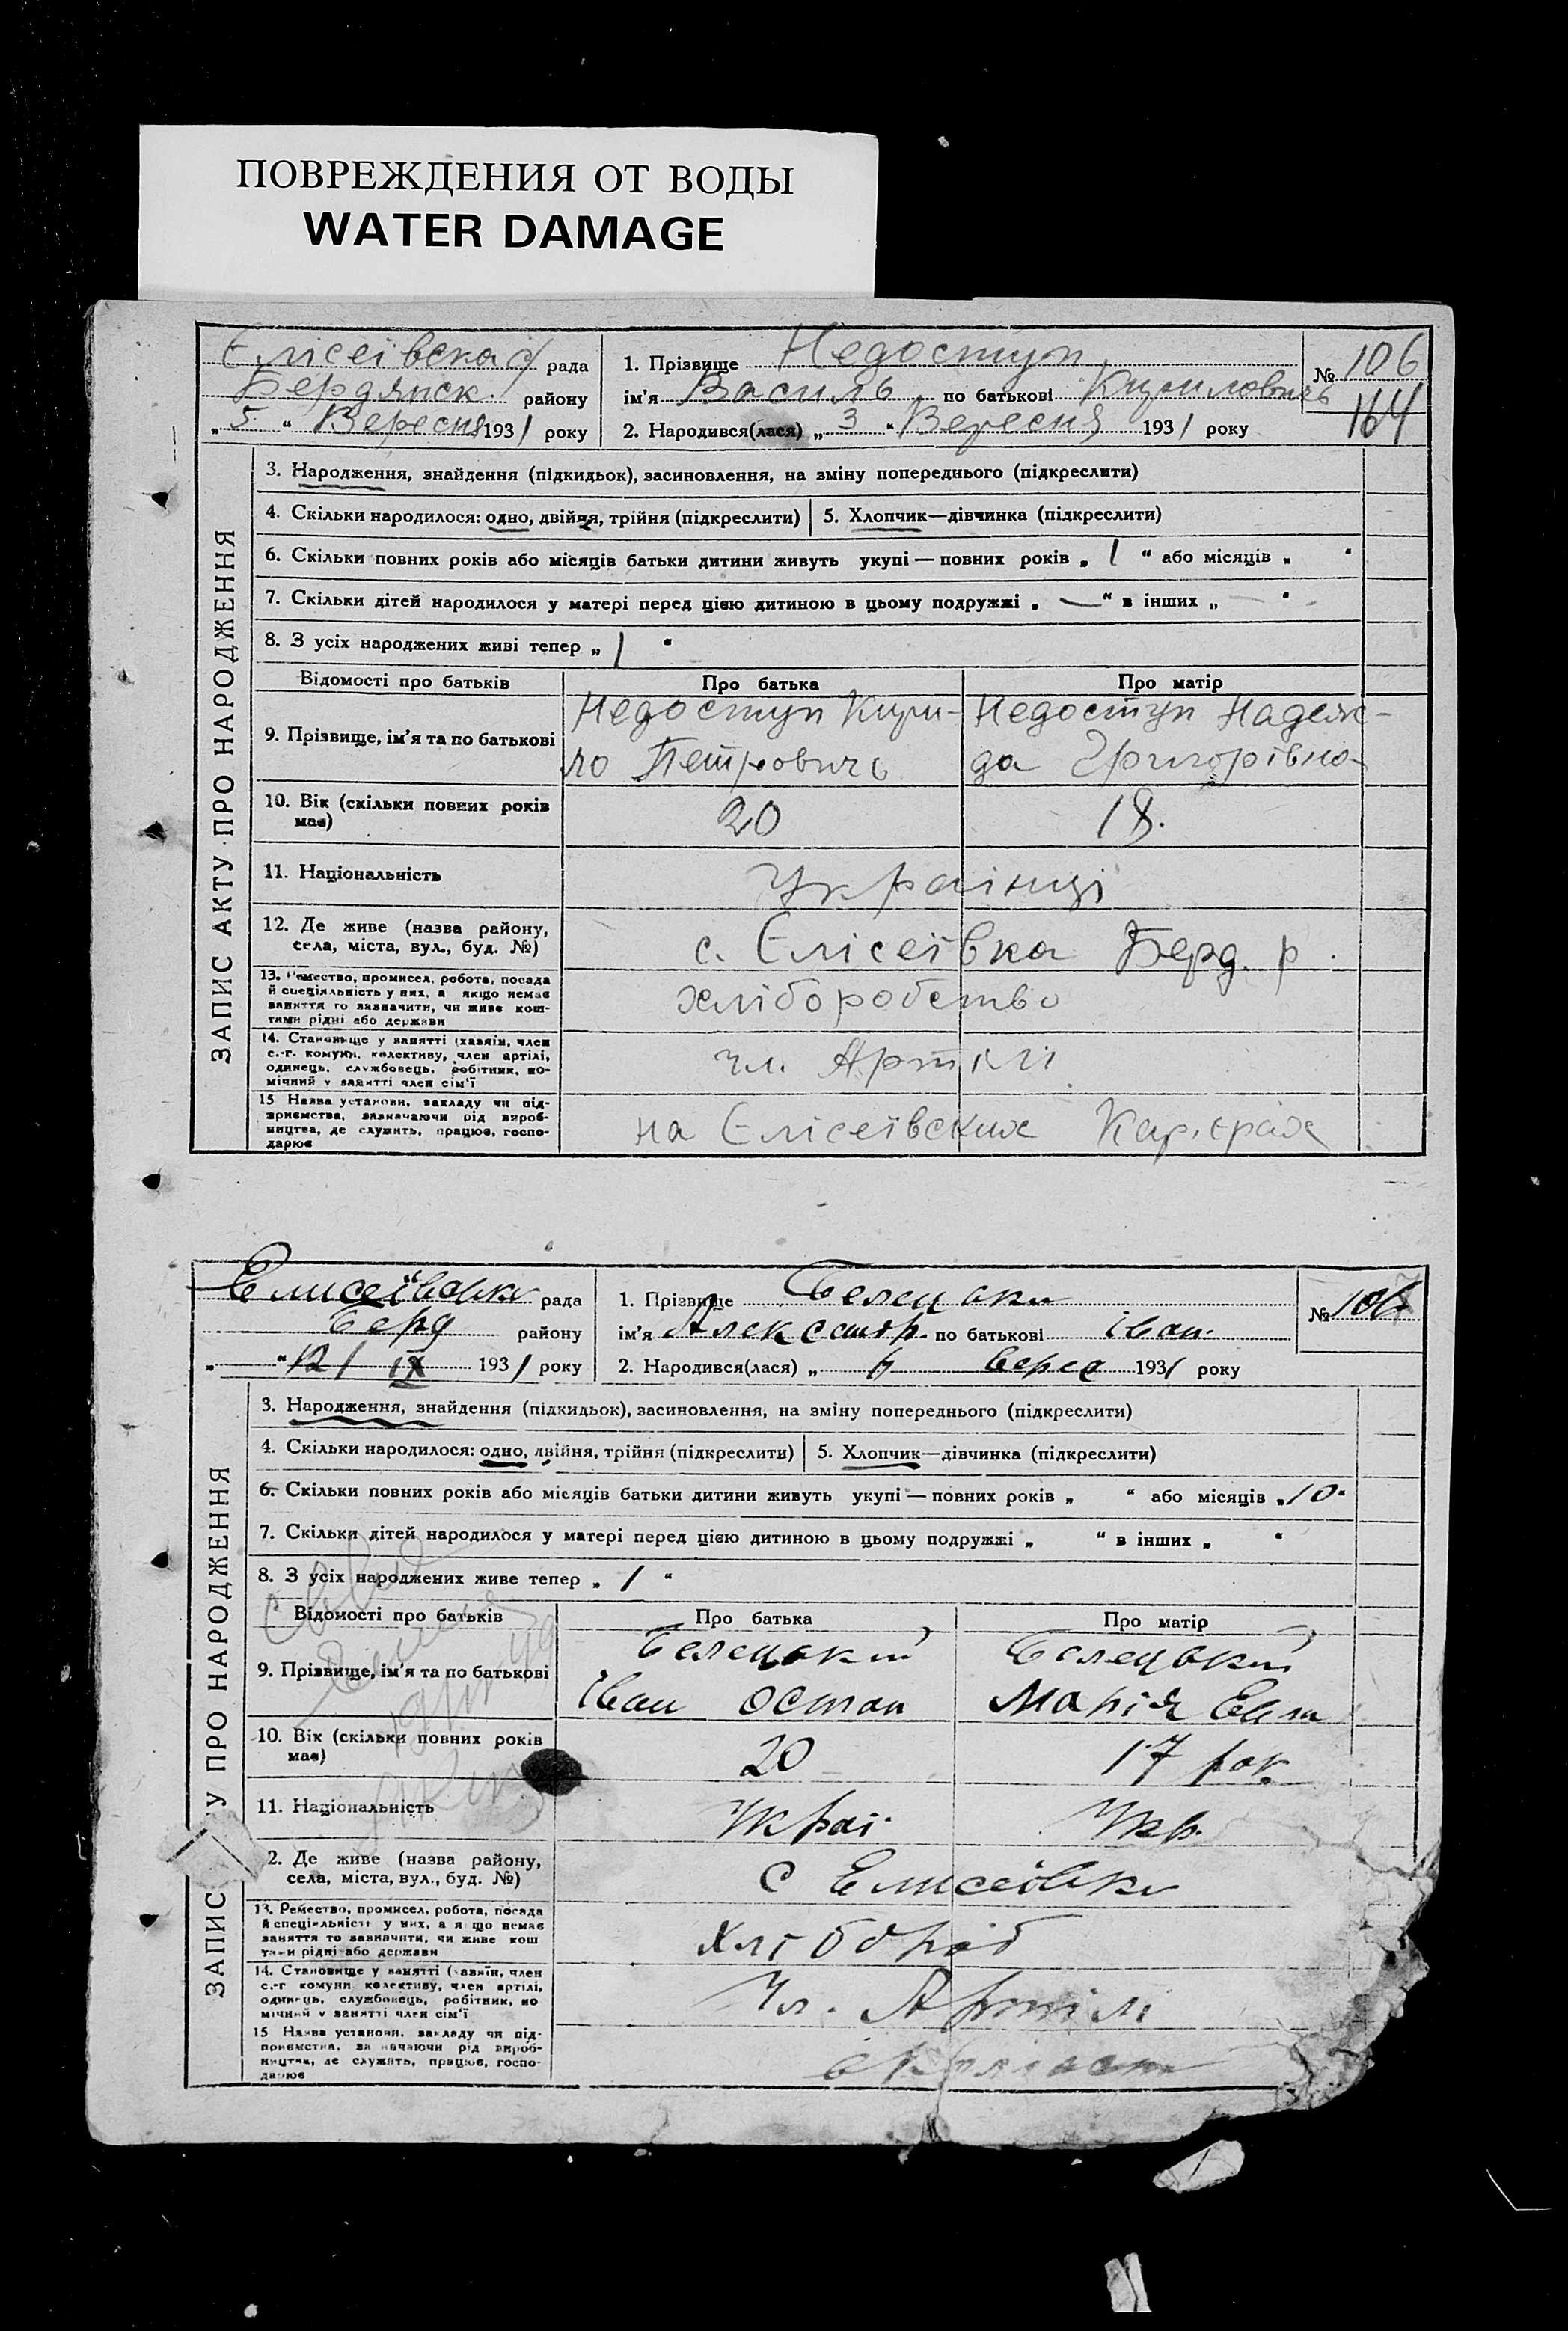 ПОВРЕЖДЕНИЯ ОТ ВОДЫ
WATER DAMAGE
Єлісеївска с/ рада
Бердянск району
„ 5 “ Вересня 1931 року
1. Прізвище Недоступ
ім'я Василь по батькові Кирилович
2. Народився(лася) „ 3 “ Вересня 1931 року
№ 106
164
ЗАПИС АКТУ ПРО НАРОДЖЕННЯ
3. Народження, знайдення (підкидьок), засиновлення, на зміну попереднього (підкреслити)
4. Скільки народилося: одно, двійня, трійня (підкреслити) 5. Хлопчик—дівчинка (підкреслити)
6. Скільки повних років або місяців батьки дитини живуть укупі — повних років „ 1 “ або місяців „ “
7. Скільки дітей народилося у матері перед цією дитиною в цьому подружжі „ — “ в інших „ — “
8. З усіх народжених живі тепер „ 1 “
Відомості про батьків Про батька Про матір
9. Прізвище, ім'я та по батькові
Недоступ Кири-
ло Петрович
Недоступ Надеж-
да Григорівна
10. Вік (скільки повних років
має)
20 18.
11. Національність
Українці
12. Де живе (назва району,
села, міста, вул., буд. №)
с. Єлісеївка Берд. р.
13. Ремество, промисел, робота, посада
й спеціяльність у них, а якщо немає
заняття то зазначити, чи живе кош-
тами рідні або держави
хліборобство
14. Становище у занятті (хазяїн, член
с.-г. комуни, колективу, член артілі,
одинець, службовець, робітник, по-
мічний у занятті член сім'ї
чл. Артілі
15 Назва установи, закладу чи під-
приємства, зазначаючи рід вироб-
ництва, де служить, працює, госпо-
дарює
на Єлісеївских Кар'єрах
Елисеївська рада
Берд району
„ “ 12/ IX 1931 року
1. Прізвище Белецьки
ім'я Александр. по батькові іван.
2. Народився(лася) „ верес 1931 року
№ 107
ЗАПИС У ПРО НАРОДЖЕННЯ
3. Народження, знайдення (підкидьок), засиновлення, на зміну попереднього (підкреслити)
4. Скільки народилося: одно, двійня, трійня (підкреслити) 5. Хлопчик—дівчинка (підкреслити)
6. Скільки повних років або місяців батьки дитини живуть укупі — повних років „ “ або місяців „ 10 “
7. Скільки дітей народилося у матері перед цією дитиною в цьому подружжі „ “ в інших „ “
8. З усіх народжених живе тепер „ 1 “
Відомості про батьків Про батька Про матір
9. Прізвище, ім'я та по батькові
Белецький
іван остап
Белецький
Марія
10. Вік (скільки повних років
має)
20 17 рок.
11. Національність
Украї. Укр.
2. Де живе (назва району,
села, міста, вул., буд. №)
с Елисеївка
13. Ремество, промисел, робота, посада
й спеціяльність у них, а якщо немає
заняття то зазначити, чи живе кош
тами рідні або держави
Хлібороб
14. Становище у занятті (хазяїн, член
с.-г комуни колективу, член артілі,
одинець, службовець, робітник, по
мічний у занятті член сім'ї
Чл. Артілі
15 Назва установи, закладу чи під-
приємства, зазначаючи рід вироб-
ництва, де служить, працює, госпо-
дарює